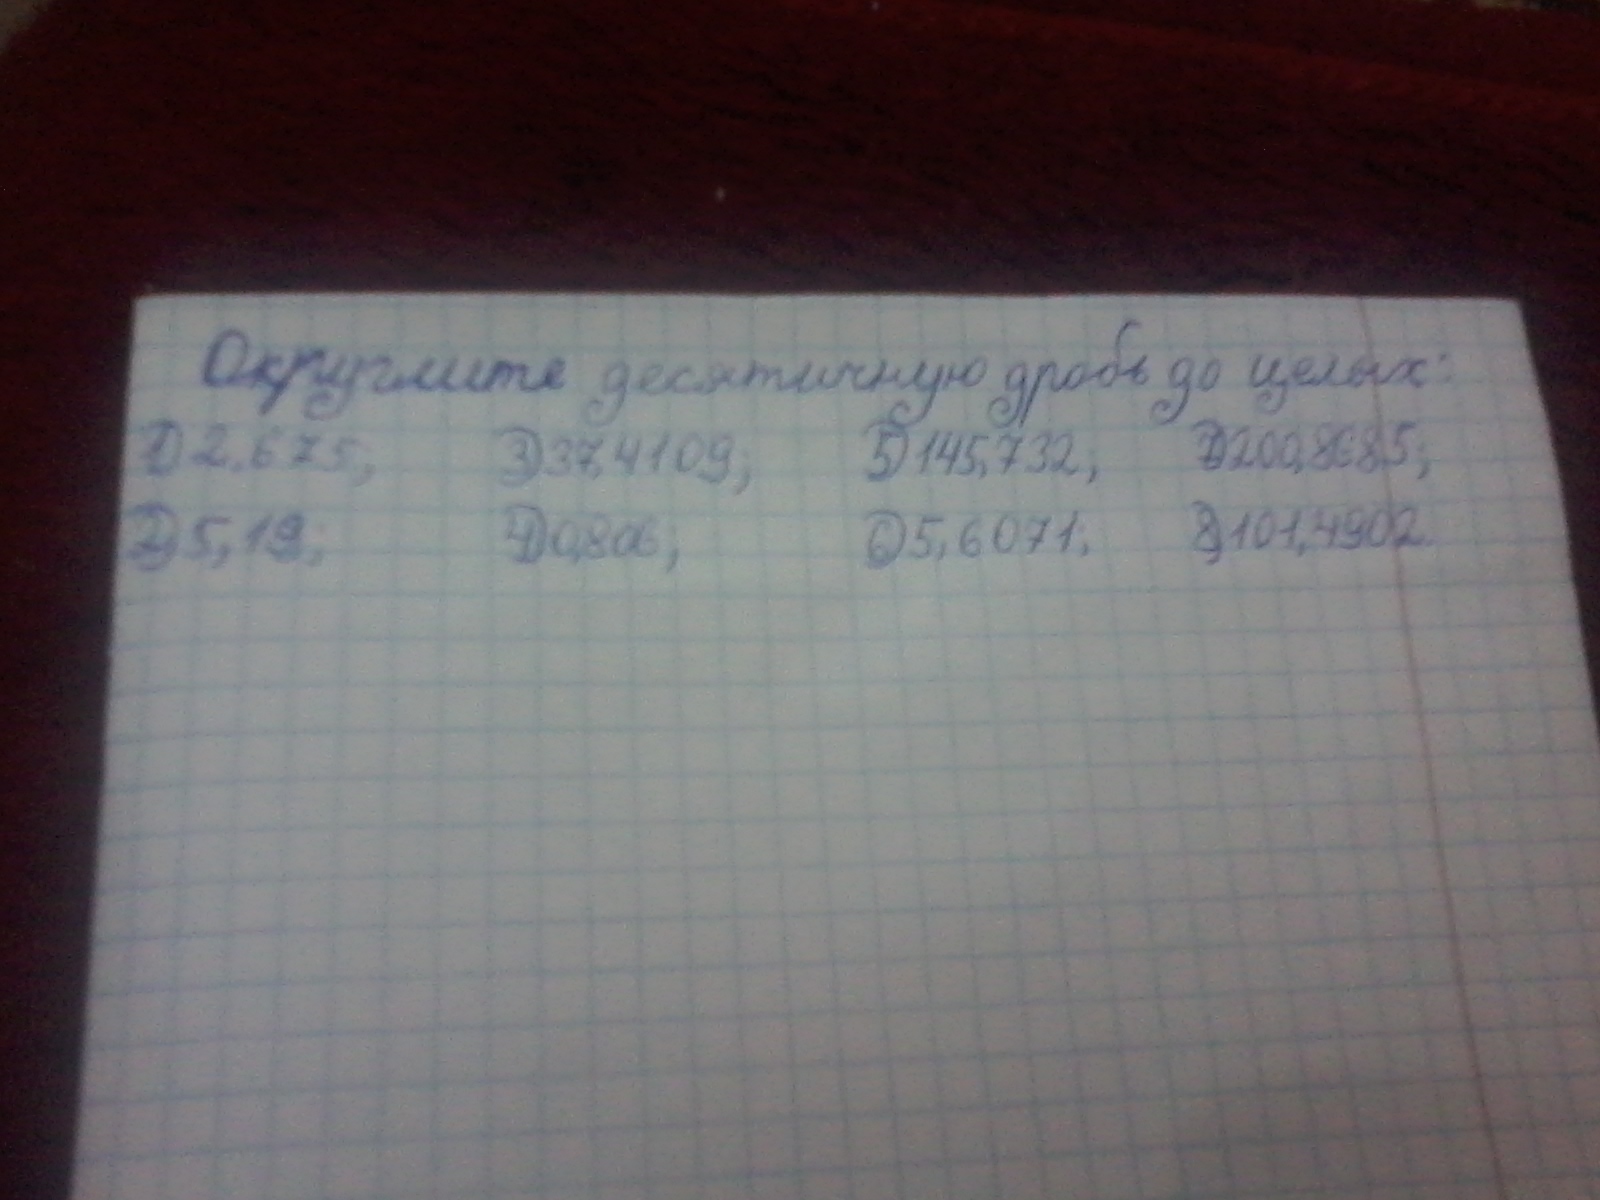 Округлите десятичную дробь до целых:
1) 2,675; 3) 37,4109; 5) 145,732; 7) 200,8685;
2) 5,19; 4) 0,806; 6) 5,6071; 8) 101,4902.